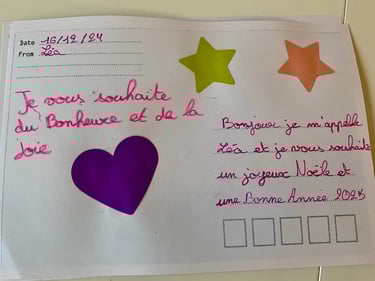 Date 16/12/24
From Léa
Je vous souhaite
du Bonheure et de la
joie
Bonjour je m'appelle
Léa et je vous souhaite
un joyeux Noële et
une Bonne Année 2025